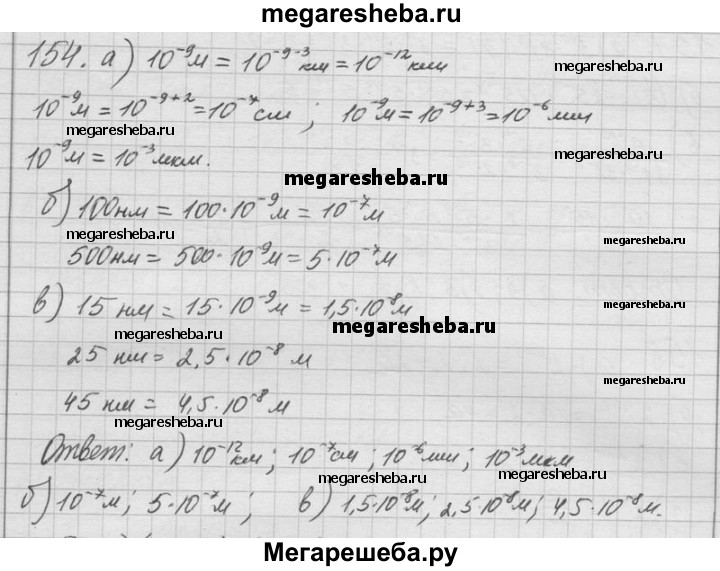 megaresheba.ru
154. а) 10⁻⁹м = 10⁻⁹⁻³км = 10⁻¹²км
megaresheba.ru
megaresheba.ru
10⁻⁹м = 10⁻⁹⁺² = 10⁻⁷см ; 10⁻⁹м = 10⁻⁹⁺³ = 10⁻⁶мм
megaresheba.ru
megaresheba.ru
10⁻⁹м = 10⁻³мкм.
megaresheba.ru
б) 100нм = 100·10⁻⁹м = 10⁻⁷м
megaresheba.ru
megaresheba.ru
500нм = 500·10⁻⁹м = 5·10⁻⁷м
в) 15 нм = 15·10⁻⁹м = 1,5·10⁻⁸м
megaresheba.ru
megaresheba.ru
25 нм = 2,5·10⁻⁸ м
megaresheba.ru
45 нм = 4,5·10⁻⁸ м
Ответ: а) 10⁻¹²км; 10⁻⁷см; 10⁻⁶мм; 10⁻³мкм
megaresheba.ru
megaresheba.ru
б) 10⁻⁷м; 5·10⁻⁷м; в) 1,5·10⁻⁸м; 2,5·10⁻⁸м; 4,5·10⁻⁸м.
megaresheba.ru
megaresheba.ru
Мегарешеба.ру